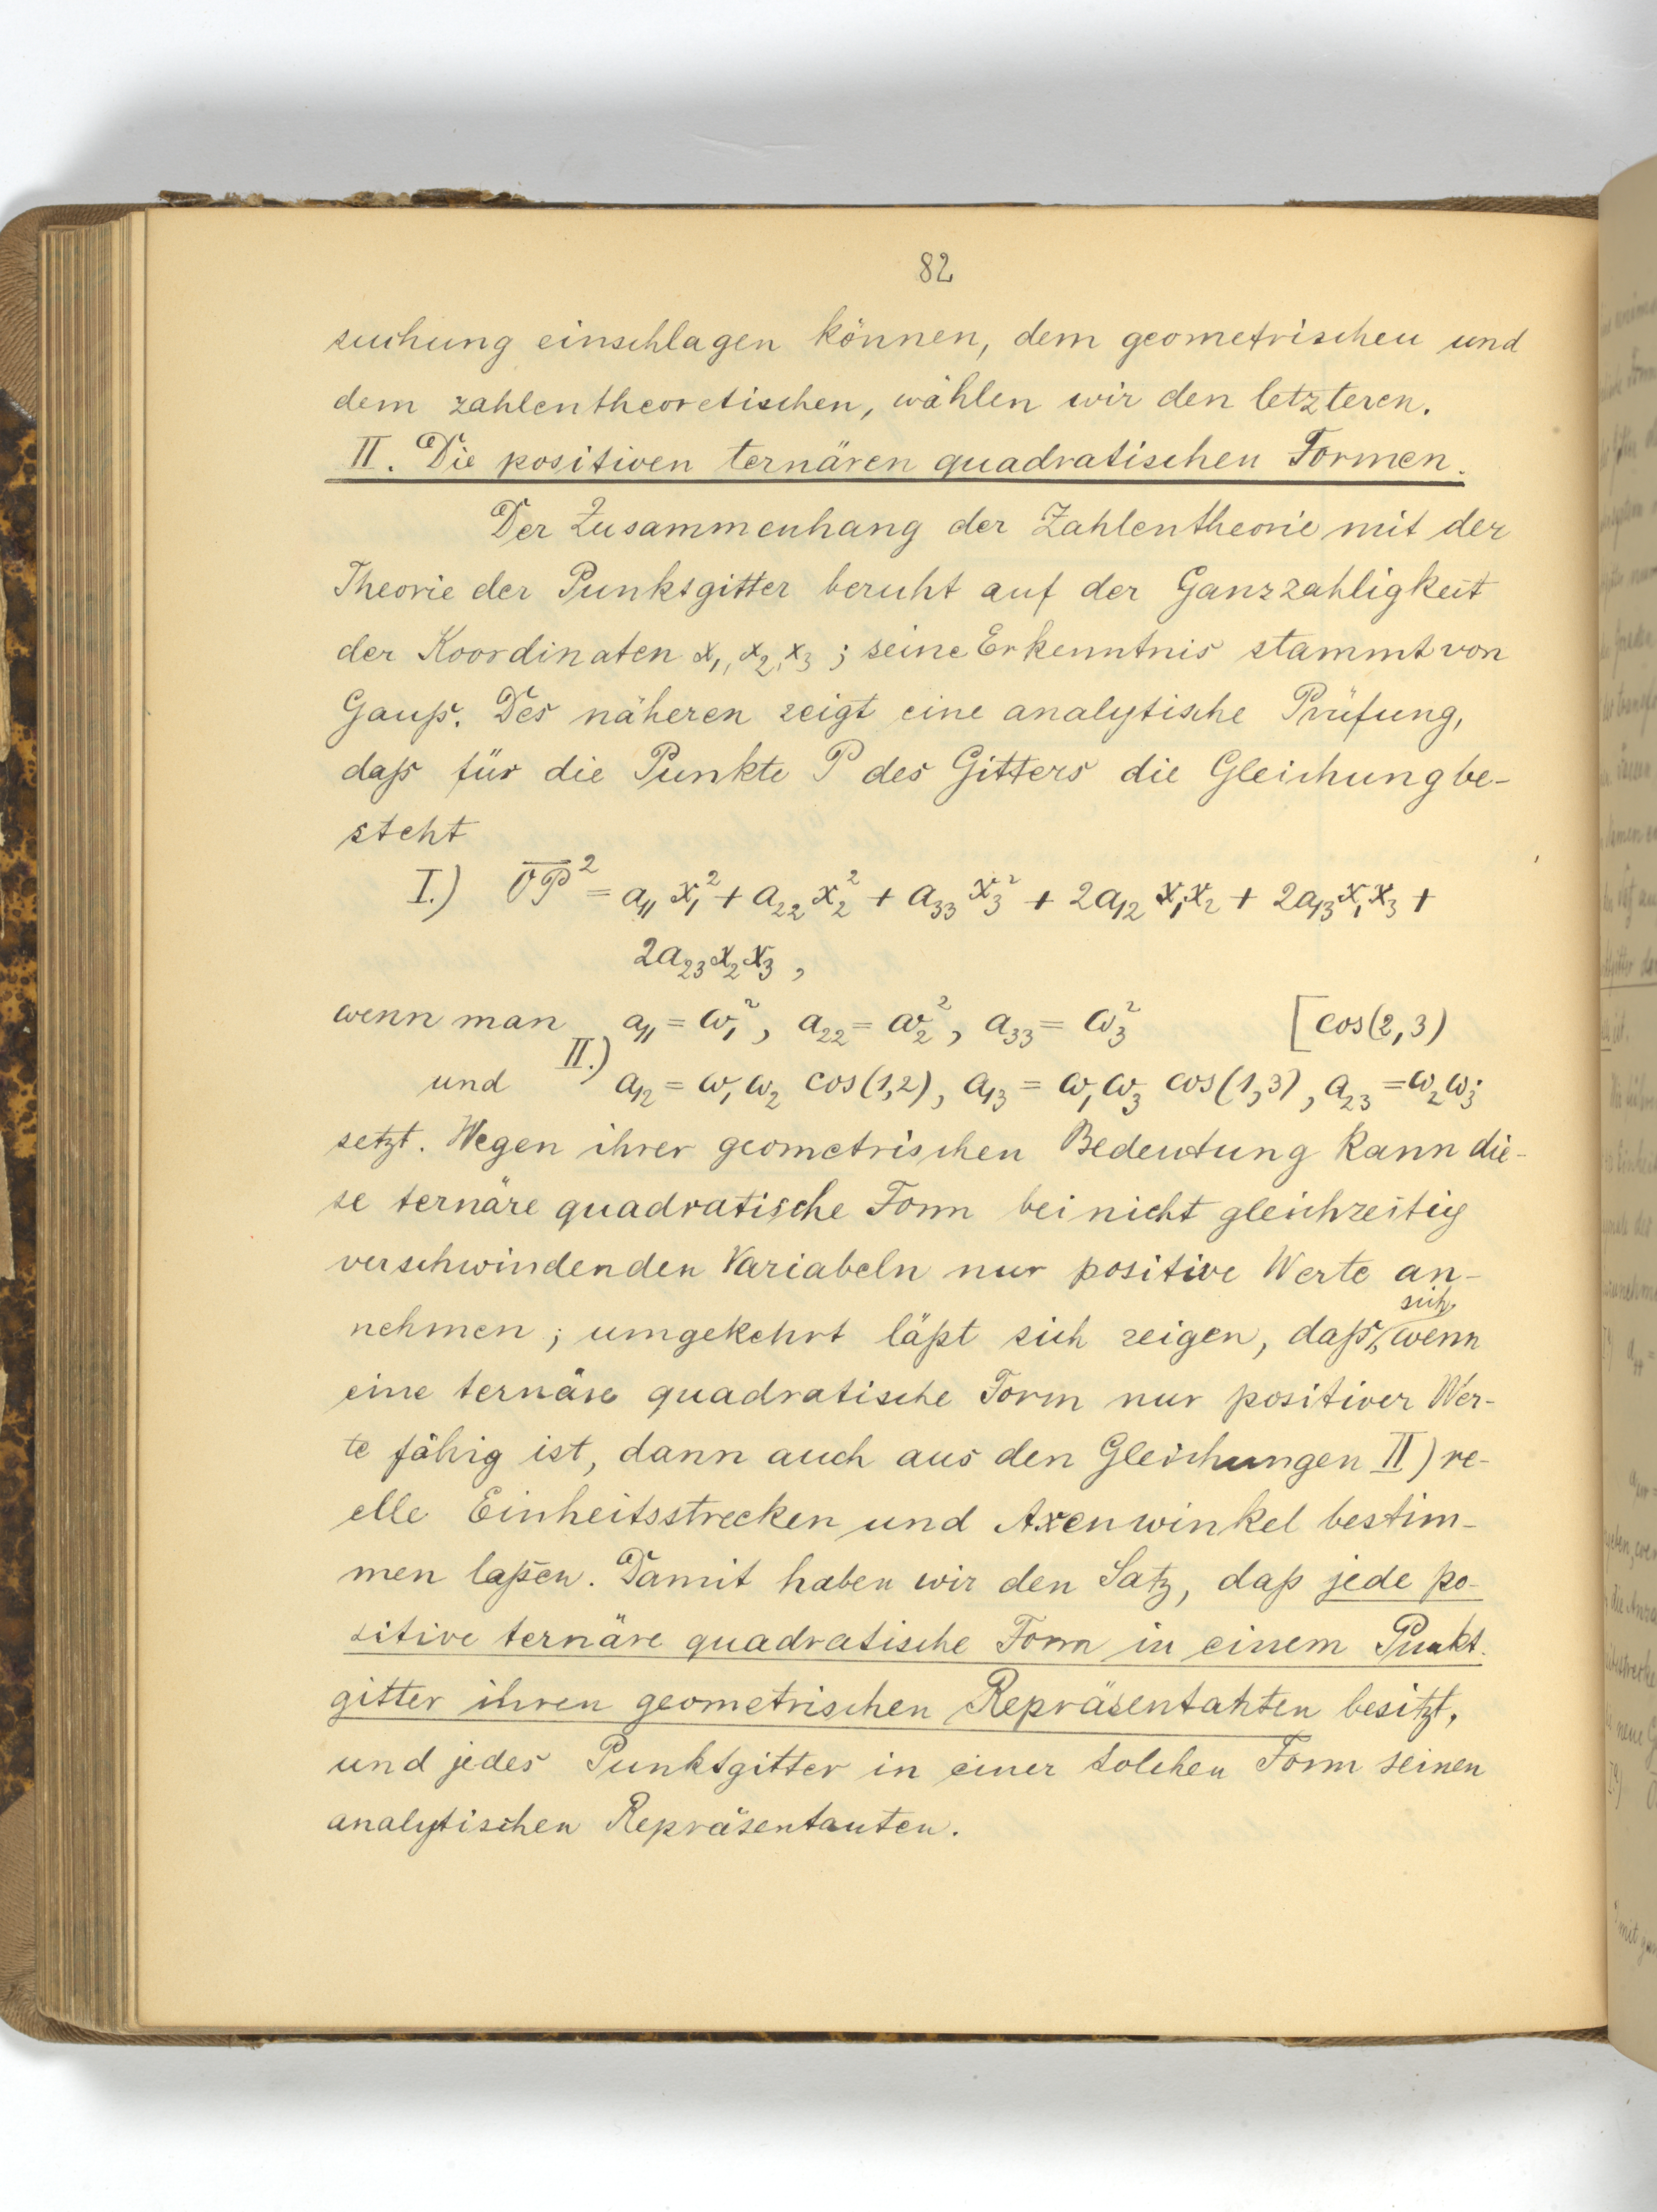 82
suchung einschlagen können, dem geometrischen und
dem zahlentheoretischen, wählen wir den letzteren.
II. Die positiven ternären quadratischen Formen.
Der Zusammenhang der Zahlentheorie mit der
Theorie der Punktgitter beruht auf der Ganzzahligkeit
der Koordinaten x₁, x₂, x₃; seine Erkenntnis stammt von
Gauß. Des näheren zeigt eine analytische Prüfung,
daß für die Punkte P des Gitters die Gleichung be-
steht
I.) O̅P̅² = a₁₁x₁² + a₂₂x₂² + a₃₃x₃² + 2a₁₂x₁x₂ + 2a₁₃x₁x₃ +
2a₂₃x₂x₃,
wenn man a₁₁ = ω₁², a₂₂ = ω₂², a₃₃ = ω₃² [cos(2,3)
und II.) a₁₂ = ω₁ω₂ cos(1,2), a₁₃ = ω₁ω₃ cos(1,3), a₂₃ = ω₂ω₃·
setzt. Wegen ihrer geometrischen Bedeutung kann die-
se ternäre quadratische Form bei nicht gleichzeitig
verschwindenden Variabeln nur positive Werte an-
nehmen; umgekehrt läßt sich zeigen, daß sich, wenn
eine ternäre quadratische Form nur positiver Wer-
te fähig ist, dann auch aus den Gleichungen II) re-
elle Einheitsstrecken und Axenwinkel bestim-
men laßen. Damit haben wir den Satz, daß jede po-
sitive ternäre quadratische Form in einem Punkt-
gitter ihren geometrischen Repräsentanten besitzt,
und jedes Punktgitter in einer solchen Form seinen
analytischen Repräsentanten.